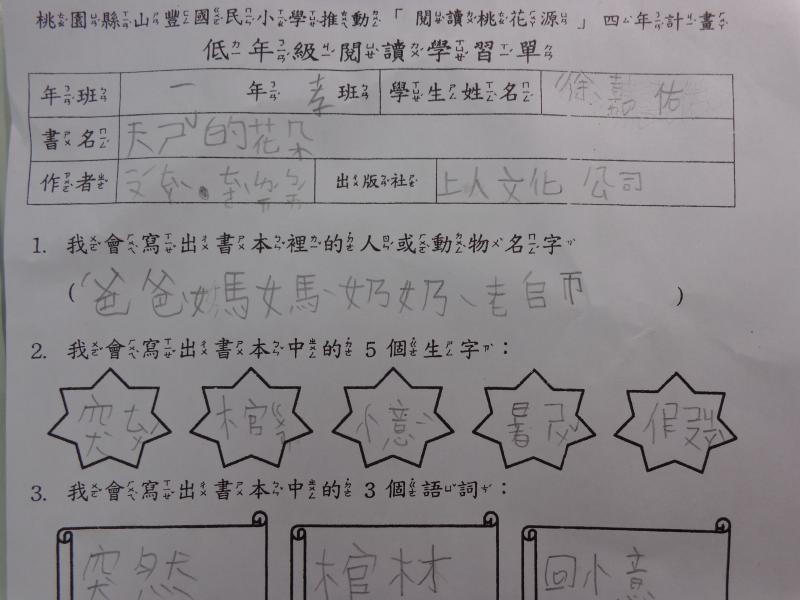 桃園縣山豐國民小學推動「閱讀桃花源」四年計畫
低年級閱讀學習單
年班 一 年 孝 班 學生姓名 徐嘉佑
書名 天ㄕˇ的花朵
作者 出版社 上人文化公司
1. 我會寫出書本裡的人或動物名字
(爸爸媽媽奶奶、老自币)
2. 我會寫出書本中的5個生字：
突 棺 憶 暑 假
3. 我會寫出書本中的3個語詞：
突然 棺材 回憶